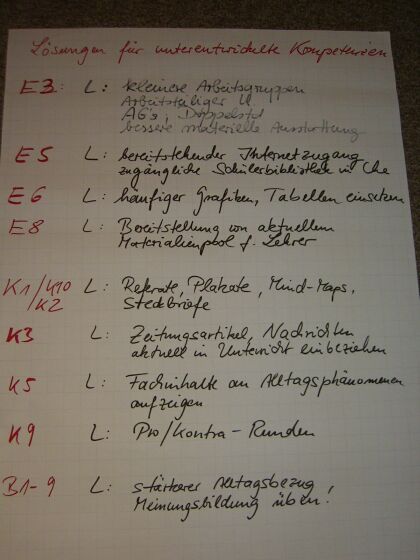 Lösungen für unterentwickelte Kompetenzen
E3: L: kleinere Arbeitsgruppen
Arbeitsteiliger U
AG's, Doppelstd
bessere materielle Ausstattung
E5 L: bereitstehender Internetzugang
zugängliche Schülerbibliothek in Che
E6 L: häufiger Grafiken, Tabellen einsetzen
E8 L: Bereitstellung von aktuellem
Materialienpool f. Lehrer
K1/K10 L: Referate, Plakate, Mind-Maps,
/K2 Steckbriefe
K3 L: Zeitungsartikel, Nachrichten
aktuell in Unterricht einbeziehen
K5 L: Fachinhalte an Alltagsphänomenen
aufzeigen
K9 L: Pro/Kontra-Runden
B1-9 L: stärkerer Alltagsbezug,
Meinungsbildung üben!